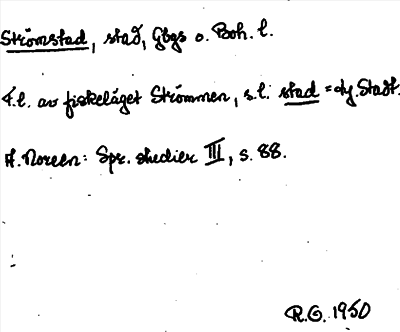 Strömstad, stad, Gbgs o. Boh. l.
F.l. av fiskeläget Strömmen, s.l. stad = ty. Stadt.
A. Noreen: Spr. studier III, s. 88.
R.G. 1950